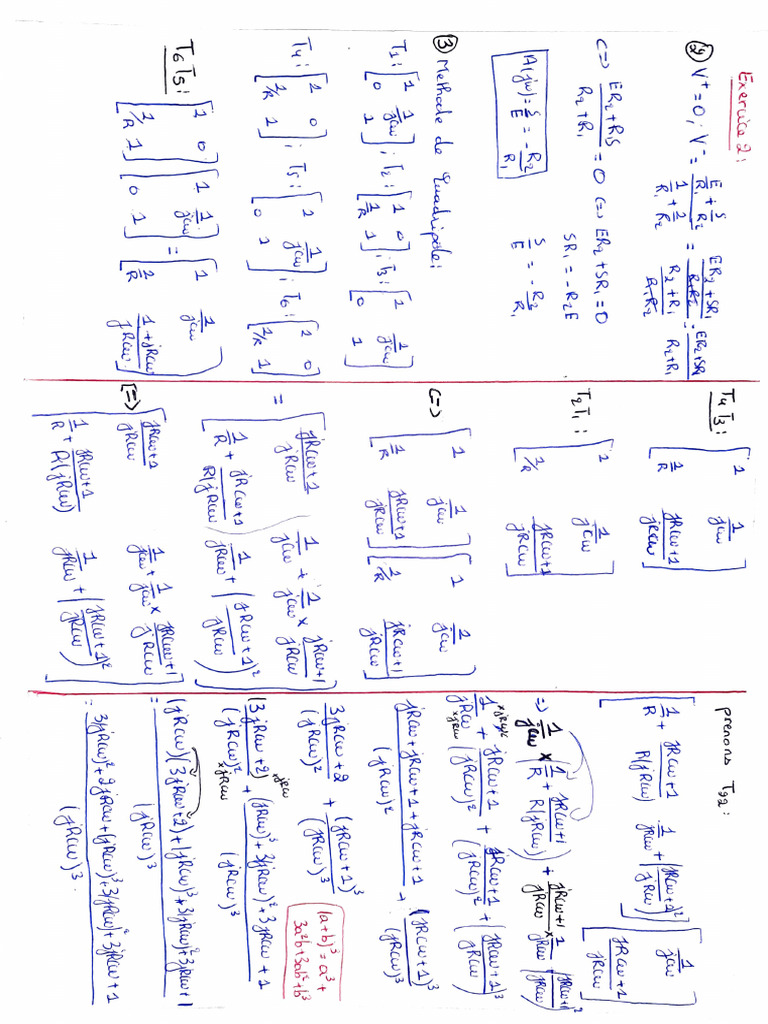 Exercice 2:
② V⁺ = 0 ; V⁻ = (E/R₁ + S/R₂)/(1/R₁ + 1/R₂) = ((ER₂ + SR₁)/R₁R₂)/((R₂ + R₁)/R₁R₂) = (ER₂ + SR₁)/(R₂ + R₁)
<=> (ER₂ + R₁S)/(R₂ + R₁) = 0 <=> ER₂ + SR₁ = 0
SR₁ = -R₂E
A(jω) = S/E = -R₂/R₁
S/E = -R₂/R₁
③ Methode de Quadripôle:
T₁: [1 1/jcω ; 0 1] ; T₂: [1 0 ; 1/R 1] ; T₃: [1 1/jcω ; 0 1]
T₄: [1 0 ; 1/R 1] ; T₅: [1 1/jcω ; 0 1] ; T₆: [1 0 ; 1/R 1]
T₆T₅: [1 0 ; 1/R 1] [1 1/jcω ; 0 1] = [1 1/jcω ; 1/R (1+jRcω)/jRcω]
T₄T₃: [1 1/jcω ; 1/R (jRcω+1)/jRcω]
T₂T₁: [1 1/jcω ; 1/R (jRcω+1)/jRcω]
<=> [1 1/jcω ; 1/R (jRcω+1)/jRcω] [1 1/jcω ; 1/R (jRcω+1)/jRcω]
= [(jRcω+1)/jRcω 1/jcω + 1/jcω × (jRcω+1)/jRcω ; 1/R + (jRcω+1)/R(jRcω) 1/jRcω + ((jRcω+1)/jRcω)²]
(=) [(jRcω+1)/jRcω 1/jcω + 1/jcω × (jRcω+1)/jRcω ; 1/R + (jRcω+1)/R(jRcω) 1/jRcω + ((jRcω+1)/jRcω)²]
prenons T₂₂:
[1/R + (jRcω+1)/R(jRcω) 1/jRcω + ((jRcω+1)/jRcω)²] [1/jcω ; (jRcω+1)/jRcω]
=> 1/jcω × (1/R + (jRcω+1)/R(jRcω)) + (jRcω+1)/jRcω × (1/jRcω + ((jRcω+1)/jRcω)²)
1×jRcω/jRcω×jRcω + (jRcω+1)/(jRcω)² + (jRcω+1)/(jRcω)² + ((jRcω+1)/jRcω)³
(jRcω + jRcω+1 + jRcω+1)/(jRcω)² + (jRcω+1)³/(jRcω)³
(3jRcω+2)/(jRcω)² + (jRcω+1)³/(jRcω)³
(a+b)³ = a³ + 3a²b + 3ab² + b³
(3jRcω+2)×jRcω/(jRcω)²×jRcω + ((jRcω)³ + 3(jRcω)² + 3jRcω + 1)/(jRcω)³
= ((jRcω)(3jRcω+2) + (jRcω)³ + 3(jRcω)² + 3jRcω + 1)/(jRcω)³
= (3(jRcω)² + 2jRcω + (jRcω)³ + 3(jRcω)² + 3jRcω + 1)/(jRcω)³.